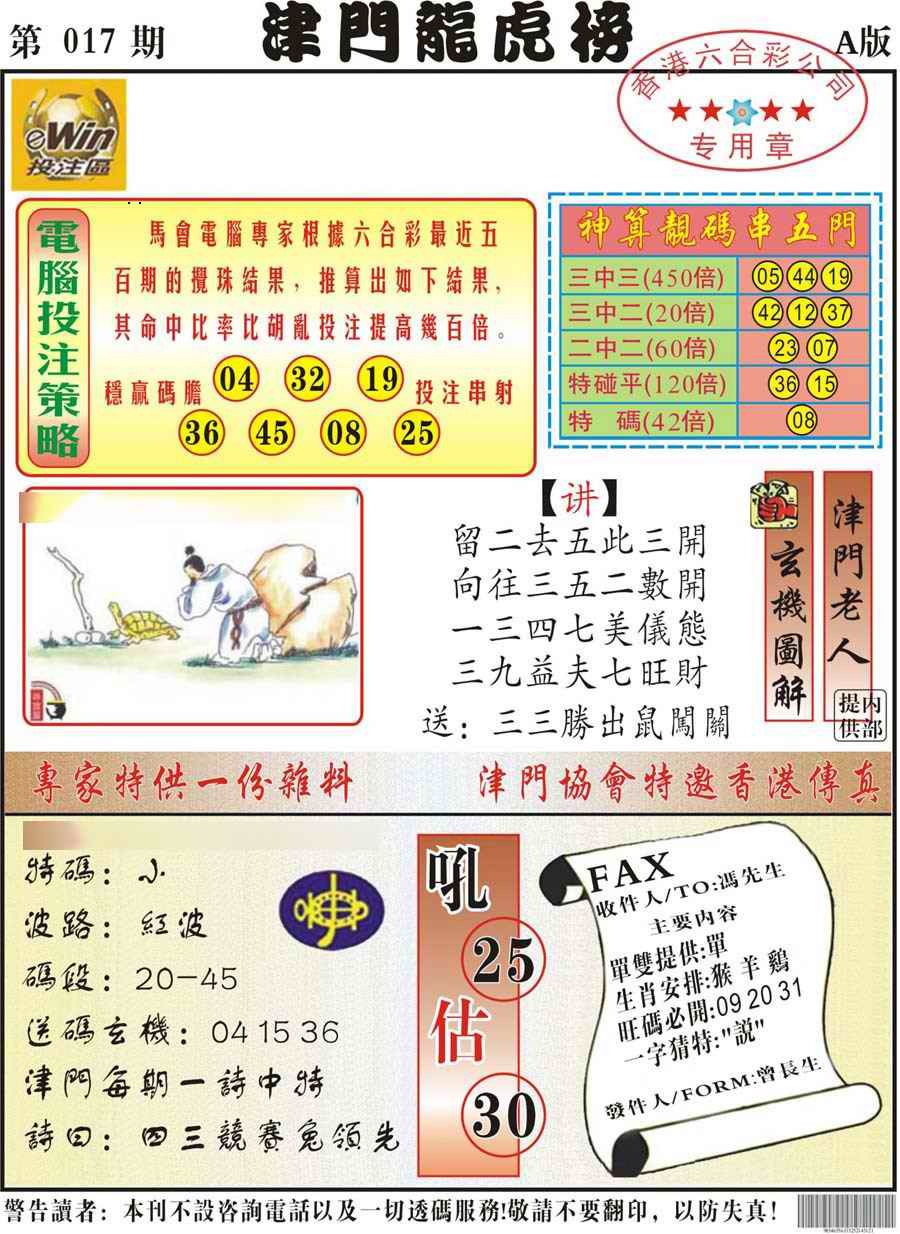 第 017 期
津門龍虎榜
A版
香港六合彩公司
专用章
eWin
投注區
電腦投注策略
馬會電腦專家根據六合彩最近五
百期的攪珠結果，推算出如下結果，
其命中比率比胡亂投注提高幾百倍。
穩贏碼膽 04 32 19 投注串射
36 45 08 25
神算靚碼串五門
三中三(450倍) 05 44 19
三中二(20倍) 42 12 37
二中二(60倍) 23 07
特碰平(120倍) 36 15
特 碼(42倍) 08
【讲】
留二去五此三開
向往三五二數開
一三四七美儀態
三九益夫七旺財
送：三三勝出鼠闖關
玄機圖解
津門老人
内部提供
專家特供一份雜料
津門協會特邀香港傳真
特碼：小
波路：紅波
碼段：20-45
送碼玄機：04 15 36
津門每期一詩中特
詩曰：四三競賽兔領先
吼
25
估
30
FAX
收件人/TO:馮先生
主要内容
單雙提供:單
生肖安排:猴 羊 鷄
旺碼必開:09 20 31
一字猜特:"説"
發件人/FORM:曾長生
警告讀者：本刊不設咨詢電話以及一切透碼服務!敬請不要翻印，以防失真!